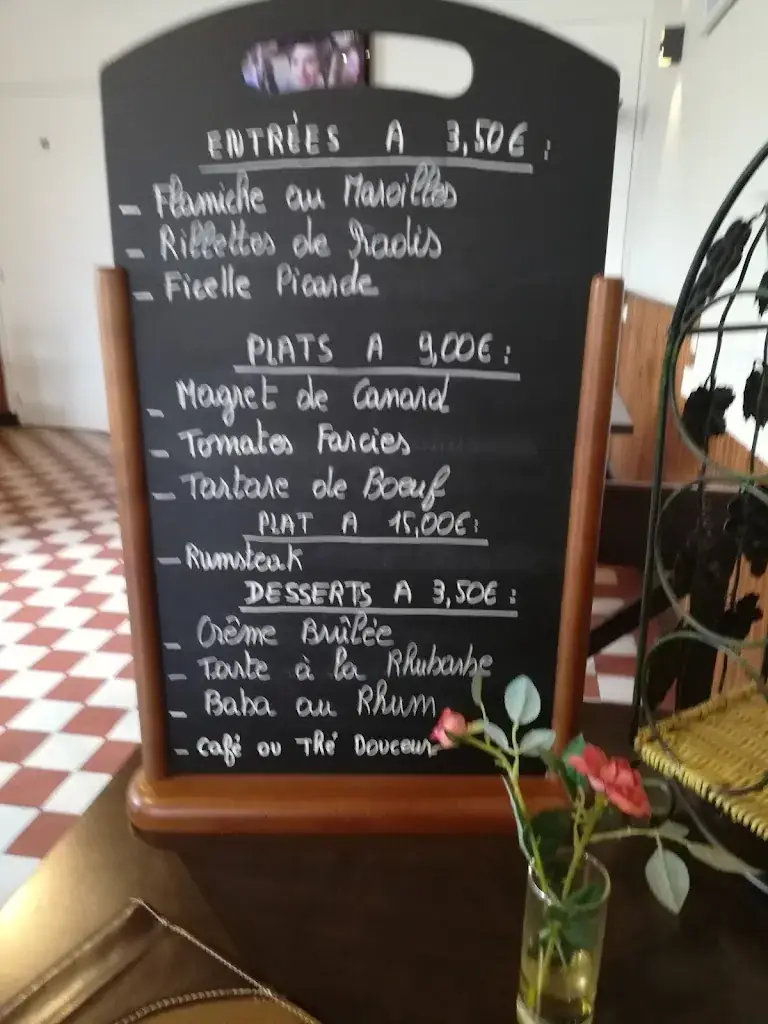 ENTRÉES A 3,50€ :
- Flamiche au Maroilles
- Rillettes de Radis
- Ficelle Picarde
PLATS A 9,00€ :
- Magret de Canard
- Tomates Farcies
- Tartare de Boeuf
PLAT A 15,00€ :
- Rumsteak
DESSERTS A 3,50€ :
- Crème Brûlée
- Tarte à la Rhubarbe
- Baba au Rhum
- Café ou Thé Douceur